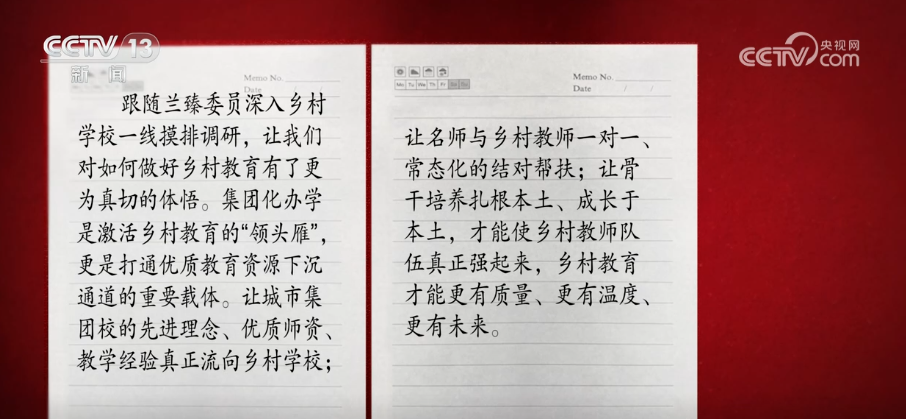 CCTV 13
新闻
央视网
CCTV.com
Memo No.
Date
跟随兰臻委员深入乡村
学校一线摸排调研，让我们
对如何做好乡村教育有了更
为真切的体悟。集团化办学
是激活乡村教育的“领头雁”，
更是打通优质教育资源下沉
通道的重要载体。让城市集
团校的先进理念、优质师资、
教学经验真正流向乡村学校；
Memo No.
Date / /
Mo Tu We Th Fr Sa Su
让名师与乡村教师一对一、
常态化的结对帮扶；让骨
干培养扎根本土、成长于
本土，才能使乡村教师队
伍真正强起来，乡村教育
才能更有质量、更有温度、
更有未来。